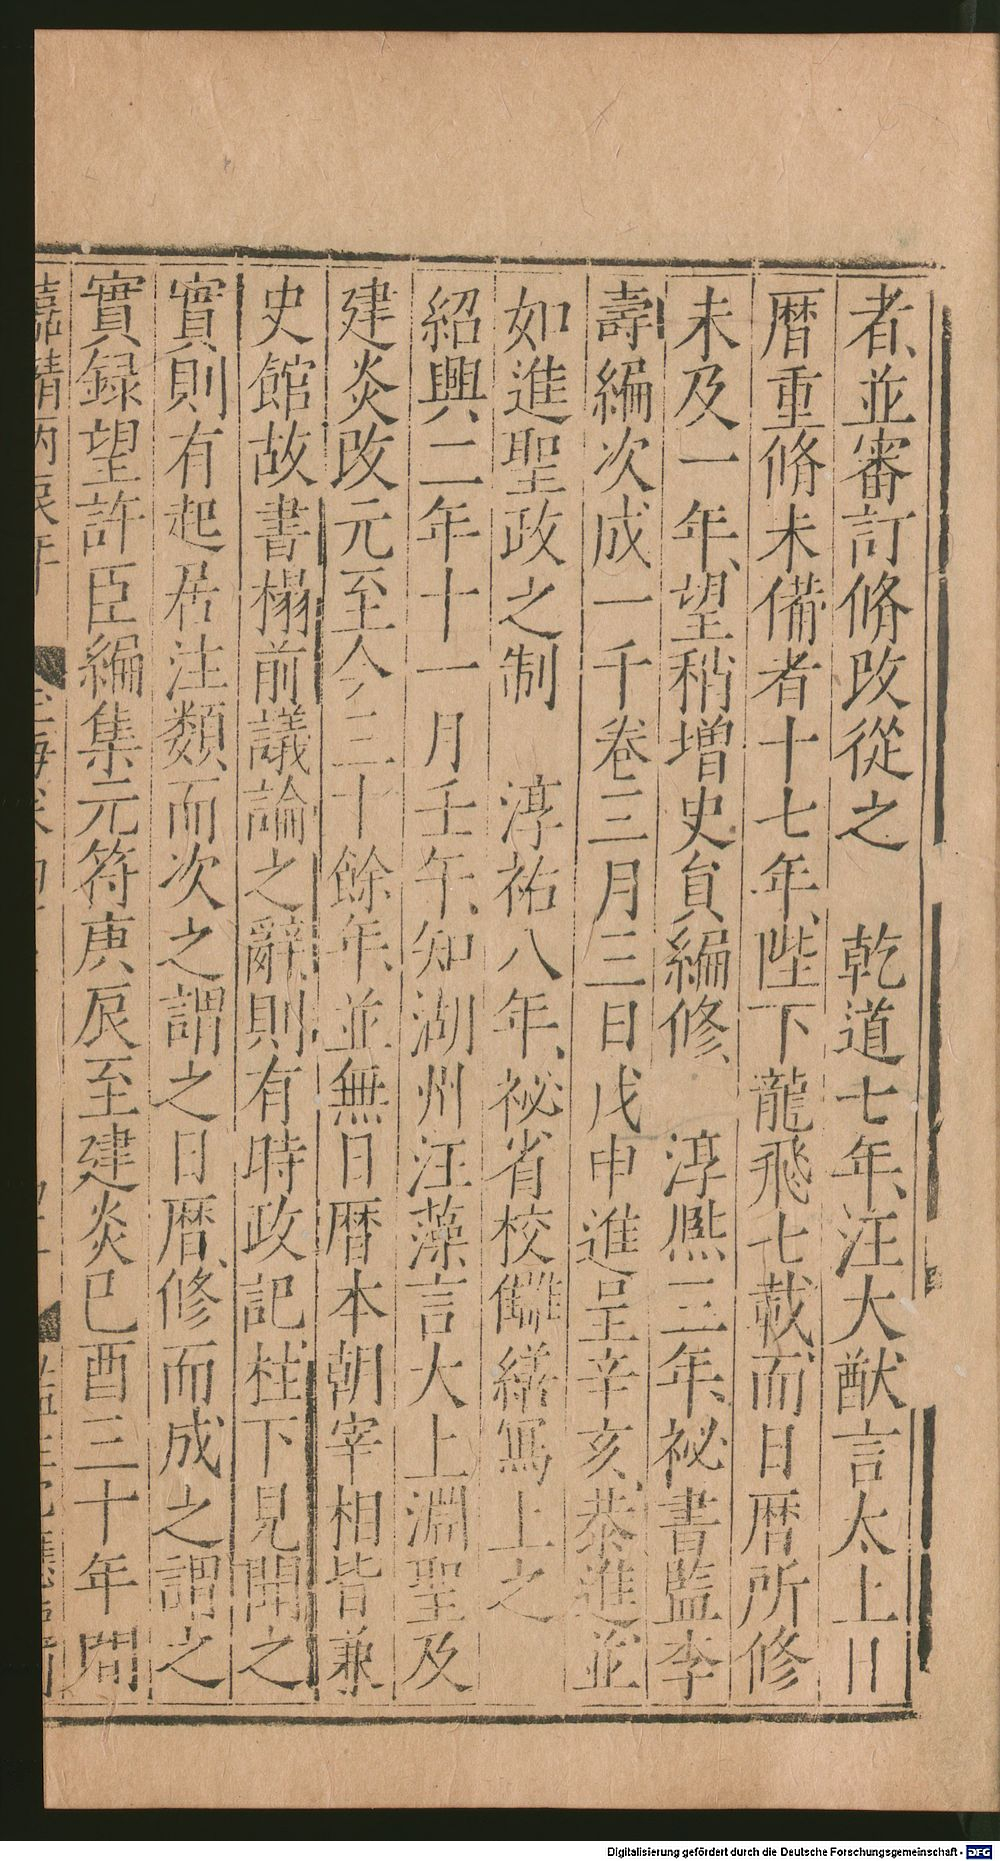 者、並審訂脩改從之　乾道七年、汪大猷言太上日
曆重脩未備者十七年、陛下龍飛七載而日曆所修
未及一年、望稍增史貟編修、淳熈三年、祕書監李
壽編次成一千卷三月三日戊申進呈辛亥、恭進並
如進聖政之制　淳祐八年、祕省校讎繕寫上之
紹興二年十一月壬午、知湖州汪藻言大上淵聖及
建炎改元至今三十餘年、並無日曆本朝宰相皆兼
史館故書榻前議論之辭、則有時政記、柱下見聞之
實則有起居注類而次之謂之日曆、修而成之謂之
實録望許臣編集元符庚辰至建炎已酉三十年間
嘉靖丙辰年
Digitalisierung gefördert durch die Deutsche Forschungsgemeinschaft - DFG